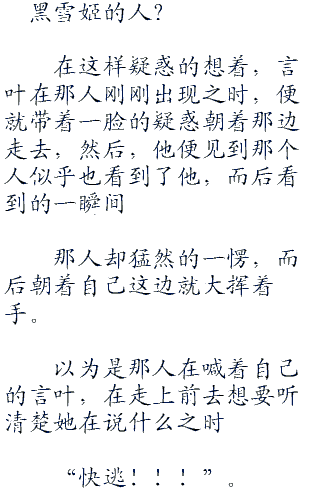 黑雪姬的人?
在这样疑惑的想着，言
叶在那人刚刚出现之时，便
就带着一脸的疑惑朝着那边
走去，然后，他便见到那个
人似乎也看到了他，而后看
到的一瞬间
那人却猛然的一愣，而
后朝着自己这边就大挥着
手。
以为是那人在喊着自己
的言叶，在走上前去想要听
清楚她在说什么之时
“快逃！！！”。